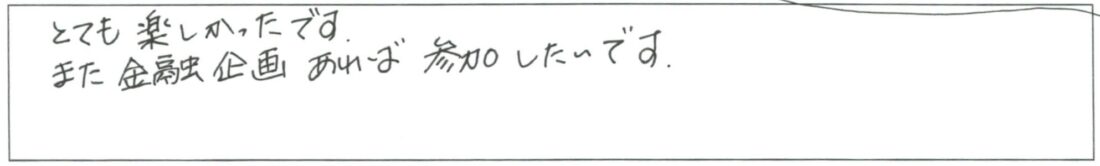 とても楽しかったです.
また金融企画あれば参加したいです.